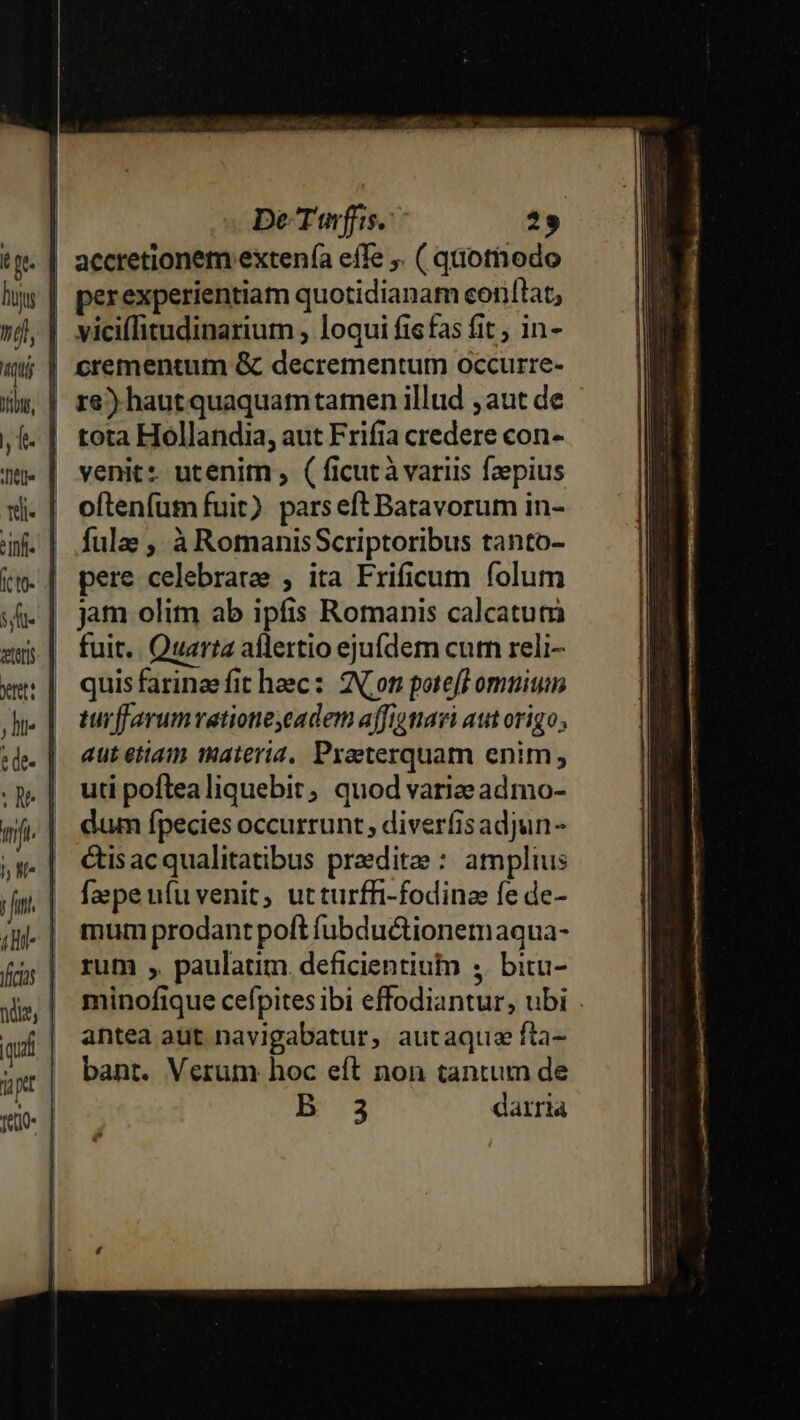 De Turffis. 29
accretionem extenſa eſſe, (quomodo
per experientiam quotidianam conſtat,
viciſſitudinarium, loqui ſic fas ſit, in-
crementum & decrementum occurre-
re) haut quaquam tamen illud, aut de
tota Hollandia, aut Friſia credere con-
venit: ut enim, (ſicut à variis ſæpius
oſtenſum fuit) pars eſt Batavorum in-
ſulæ, à Romanis Scriptoribus tanto-
pere celebratæ, ita Friſicum ſolum
jam olim ab ipſis Romanis calcatum
fuit. Quarta aſſertio ejuſdem cum reli-
quis farinæ ſit hæc: Non poteſt omnium
turffarum ratione, eadem aſſignari aut origo,
aut etiam materia. Præterquam enim,
uti poſtea liquebit, quod variæ admo-
dum ſpecies occurrunt, diverſis adjun-
ctis ac qualitatibus præditæ: amplius
ſæpe uſu venit, ut turffi-fodinæ ſe de-
mum prodant poſt ſubductionem aqua-
rum, paulatim deficientium; bitu-
minoſique ceſpites ibi effodiantur, ubi
antea aut navigabatur, aut aquæ ſta-
bant. Verum hoc eſt non tantum de
B 3 darria